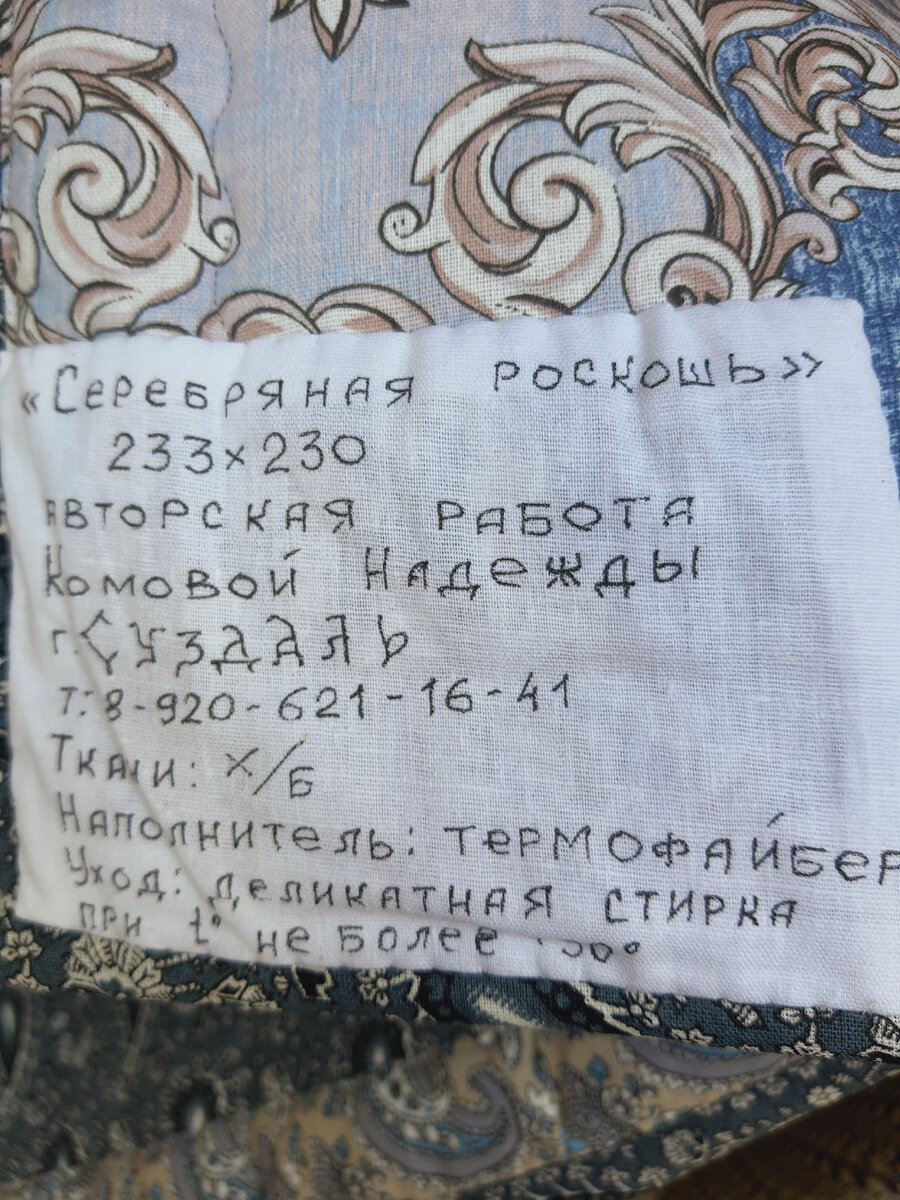 «Серебряная роскошь»
233×230
авторская работа
Комовой Надежды
г. Суздаль
т: 8-920-621-16-41
Ткани: х/б
Наполнитель: термофайбер
Уход: деликатная стирка
при t° не более 30°